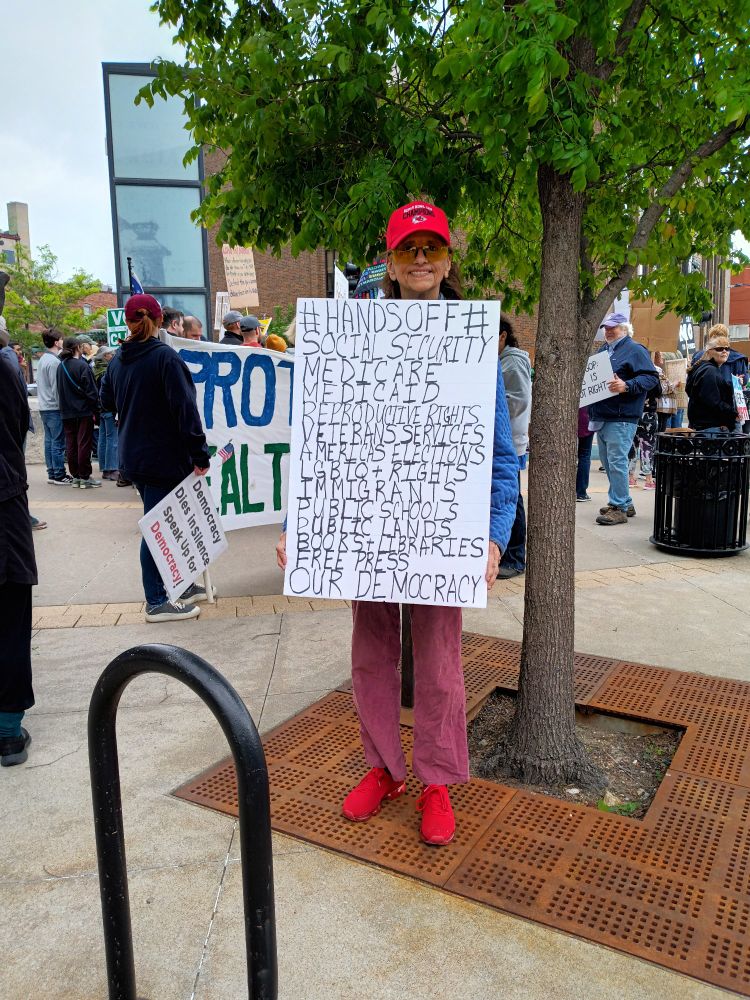 CHAMPIONS
#HANDS OFF#
SOCIAL SECURITY
MEDICARE
MEDICAID
REPRODUCTIVE RIGHTS
VETERANS SERVICES
AMERICAS ELECTIONS
LGBTQ+ RIGHTS
IMMIGRANTS
PUBLIC SCHOOLS
PUBLIC LANDS
BOOKS, LIBRARIES
FREE PRESS
OUR DEMOCRACY
PROT
ALT
Democracy
Dies in Silence
Speak Up for
Democracy!
GOP:
IS
RIGHT